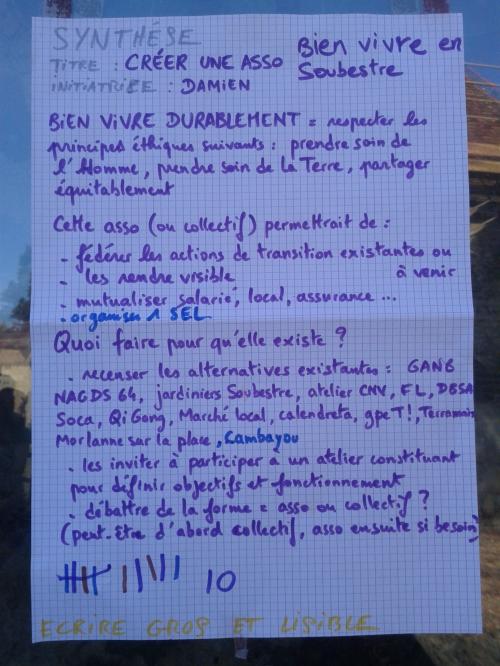 SYNTHÉSE
TITRE : CRÉER UNE ASSO Bien vivre en
Soubestre
INITIATRICE : DAMIEN
BIEN VIVRE DURABLEMENT = respecter les
principes éthiques suivants : prendre soin de
l'Homme, prendre soin de la Terre, partager
équitablement
Cette asso (ou collectif) permettrait de :
- fédérer les actions de transition existantes ou
à venir
- les rendre visible
- mutualiser salarié, local, assurance ...
- organiser 1 SEL
Quoi faire pour qu'elle existe ?
. recenser les alternatives existantes : GANB
NAGDS 64, jardiniers Soubestre, atelier CNV, FL, DBSA
Soca, Qi Gong, Marché local, calendreta, gpe T!, Terramain
Morlanne sur la place, Cambayou
. les inviter à participer à un atelier constituant
pour définir objectifs et fonctionnement
. débattre de la forme = asso ou collectif ?
(peut-être d'abord collectif, asso ensuite si besoin)
10
ECRIRE GROS ET LISIBLE